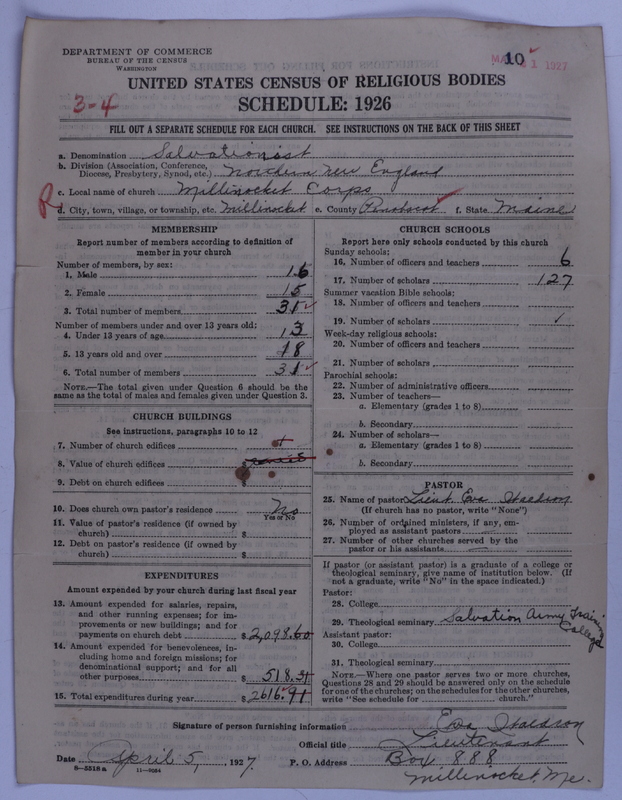 DEPARTMENT OF COMMERCE
BUREAU OF THE CENSUS
WASHINGTON
10
1 1927
UNITED STATES CENSUS OF RELIGIOUS BODIES
3-4
SCHEDULE: 1926
FILL OUT A SEPARATE SCHEDULE FOR EACH CHURCH. SEE INSTRUCTIONS ON THE BACK OF THIS SHEET
a. Denomination Salvationist
b. Division (Association, Conference, Diocese, Presbytery, Synod, etc.) Northern New England
c. Local name of church Millinocket Corps
R
d. City, town, village, or township, etc. Millinocket e. County Penobscot f. State Maine
MEMBERSHIP
Report number of members according to definition of
member in your church
Number of members, by sex:
1. Male 16
2. Female 15
3. Total number of members 31
Number of members under and over 13 years old:
4. Under 13 years of age 13
5. 13 years old and over 18
6. Total number of members 31
NOTE.—The total given under Question 6 should be the
same as the total of males and females given under Question 3.
CHURCH BUILDINGS
See instructions, paragraphs 10 to 12
7. Number of church edifices
8. Value of church edifices $
9. Debt on church edifices $
10. Does church own pastor's residence No
Yes or No
11. Value of pastor's residence (if owned by
church) $
12. Debt on pastor's residence (if owned by
church) $
EXPENDITURES
Amount expended by your church during last fiscal year
13. Amount expended for salaries, repairs,
and other running expenses; for im-
provements or new buildings; and for
payments on church debt $ 2,098.60
14. Amount expended for benevolences, in-
cluding home and foreign missions; for
denominational support; and for all
other purposes $ 518.31
15. Total expenditures during year $ 2616.91
CHURCH SCHOOLS
Report here only schools conducted by this church
Sunday schools:
16. Number of officers and teachers 6
17. Number of scholars 127
Summer vacation Bible schools:
18. Number of officers and teachers
19. Number of scholars ✓
Week-day religious schools:
20. Number of officers and teachers
21. Number of scholars
Parochial schools:
22. Number of administrative officers
23. Number of teachers—
a. Elementary (grades 1 to 8)
b. Secondary
24. Number of scholars—
a. Elementary (grades 1 to 8)
b. Secondary
PASTOR
25. Name of pastor Lieut. Eva
(If church has no pastor, write "None")
26. Number of ordained ministers, if any, em-
ployed as assistant pastors —
27. Number of other churches served by the
pastor or his assistants —
If pastor (or assistant pastor) is a graduate of a college or
theological seminary, give name of institution below. (If
not a graduate, write "No" in the space indicated.)
Pastor:
28. College
29. Theological seminary Salvation Army Training College
Assistant pastor:
30. College
31. Theological seminary
NOTE.—Where one pastor serves two or more churches,
Questions 28 and 29 should be answered only on the schedule
for one of the churches; on the schedules for the other churches,
write "See schedule for church."
Signature of person furnishing information Eva
Official title Lieutenant
Date April 5, 1927. P. O. Address Box 888
8—5518a 11—9034 Millinocket, Me.